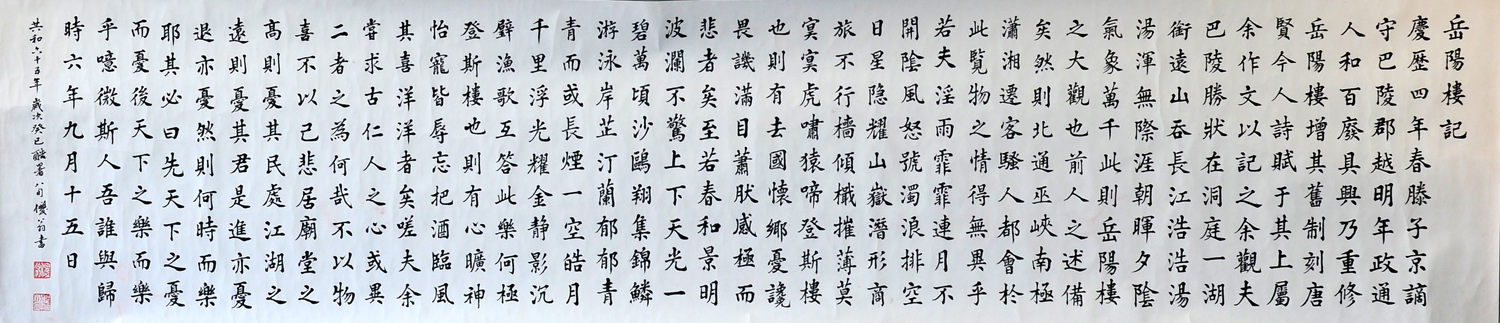 岳陽樓記
慶歷四年春滕子京謫
守巴陵郡越明年政通
人和百廢具興乃重修
岳陽樓增其舊制刻唐
賢今人詩賦于其上屬
余作文以記之余觀夫
巴陵勝狀在洞庭一湖
銜遠山吞長江浩浩湯
湯渾無際涯朝暉夕陰
氣象萬千此則岳陽樓
之大觀也前人之述備
矣然則北通巫峽南極
瀟湘遷客騷人都會於
此覽物之情得無異乎
若夫淫雨霏霏連月不
開陰風怒號濁浪排空
日星隐耀山嶽潛形商
旅不行檣傾檝摧薄莫
冥冥虎嘯猿啼登斯樓
也則有去國懷鄉憂讒
畏譏滿目蕭肰感極而
悲者矣至若春和景明
波瀾不驚上下天光一
碧萬頃沙鷗翔集錦鱗
游泳岸芷汀蘭郁郁青
青而或長煙一空皓月
千里浮光耀金静影沉
璧漁歌互答此樂何極
登斯樓也則有心曠神
怡寵皆辱忘把酒臨風
其喜洋洋者矣嗟夫余
嘗求古仁人之心或異
二者之為何哉不以物
喜不以己悲居廟堂之
高則憂其民處江湖之
遠則憂其君是進亦憂
退亦憂然則何時而樂
耶其必曰先天下之憂
而憂後天下之樂而樂
乎噫微斯人吾誰與歸
時六年九月十五日
共和六十五年歲次癸巳翁書